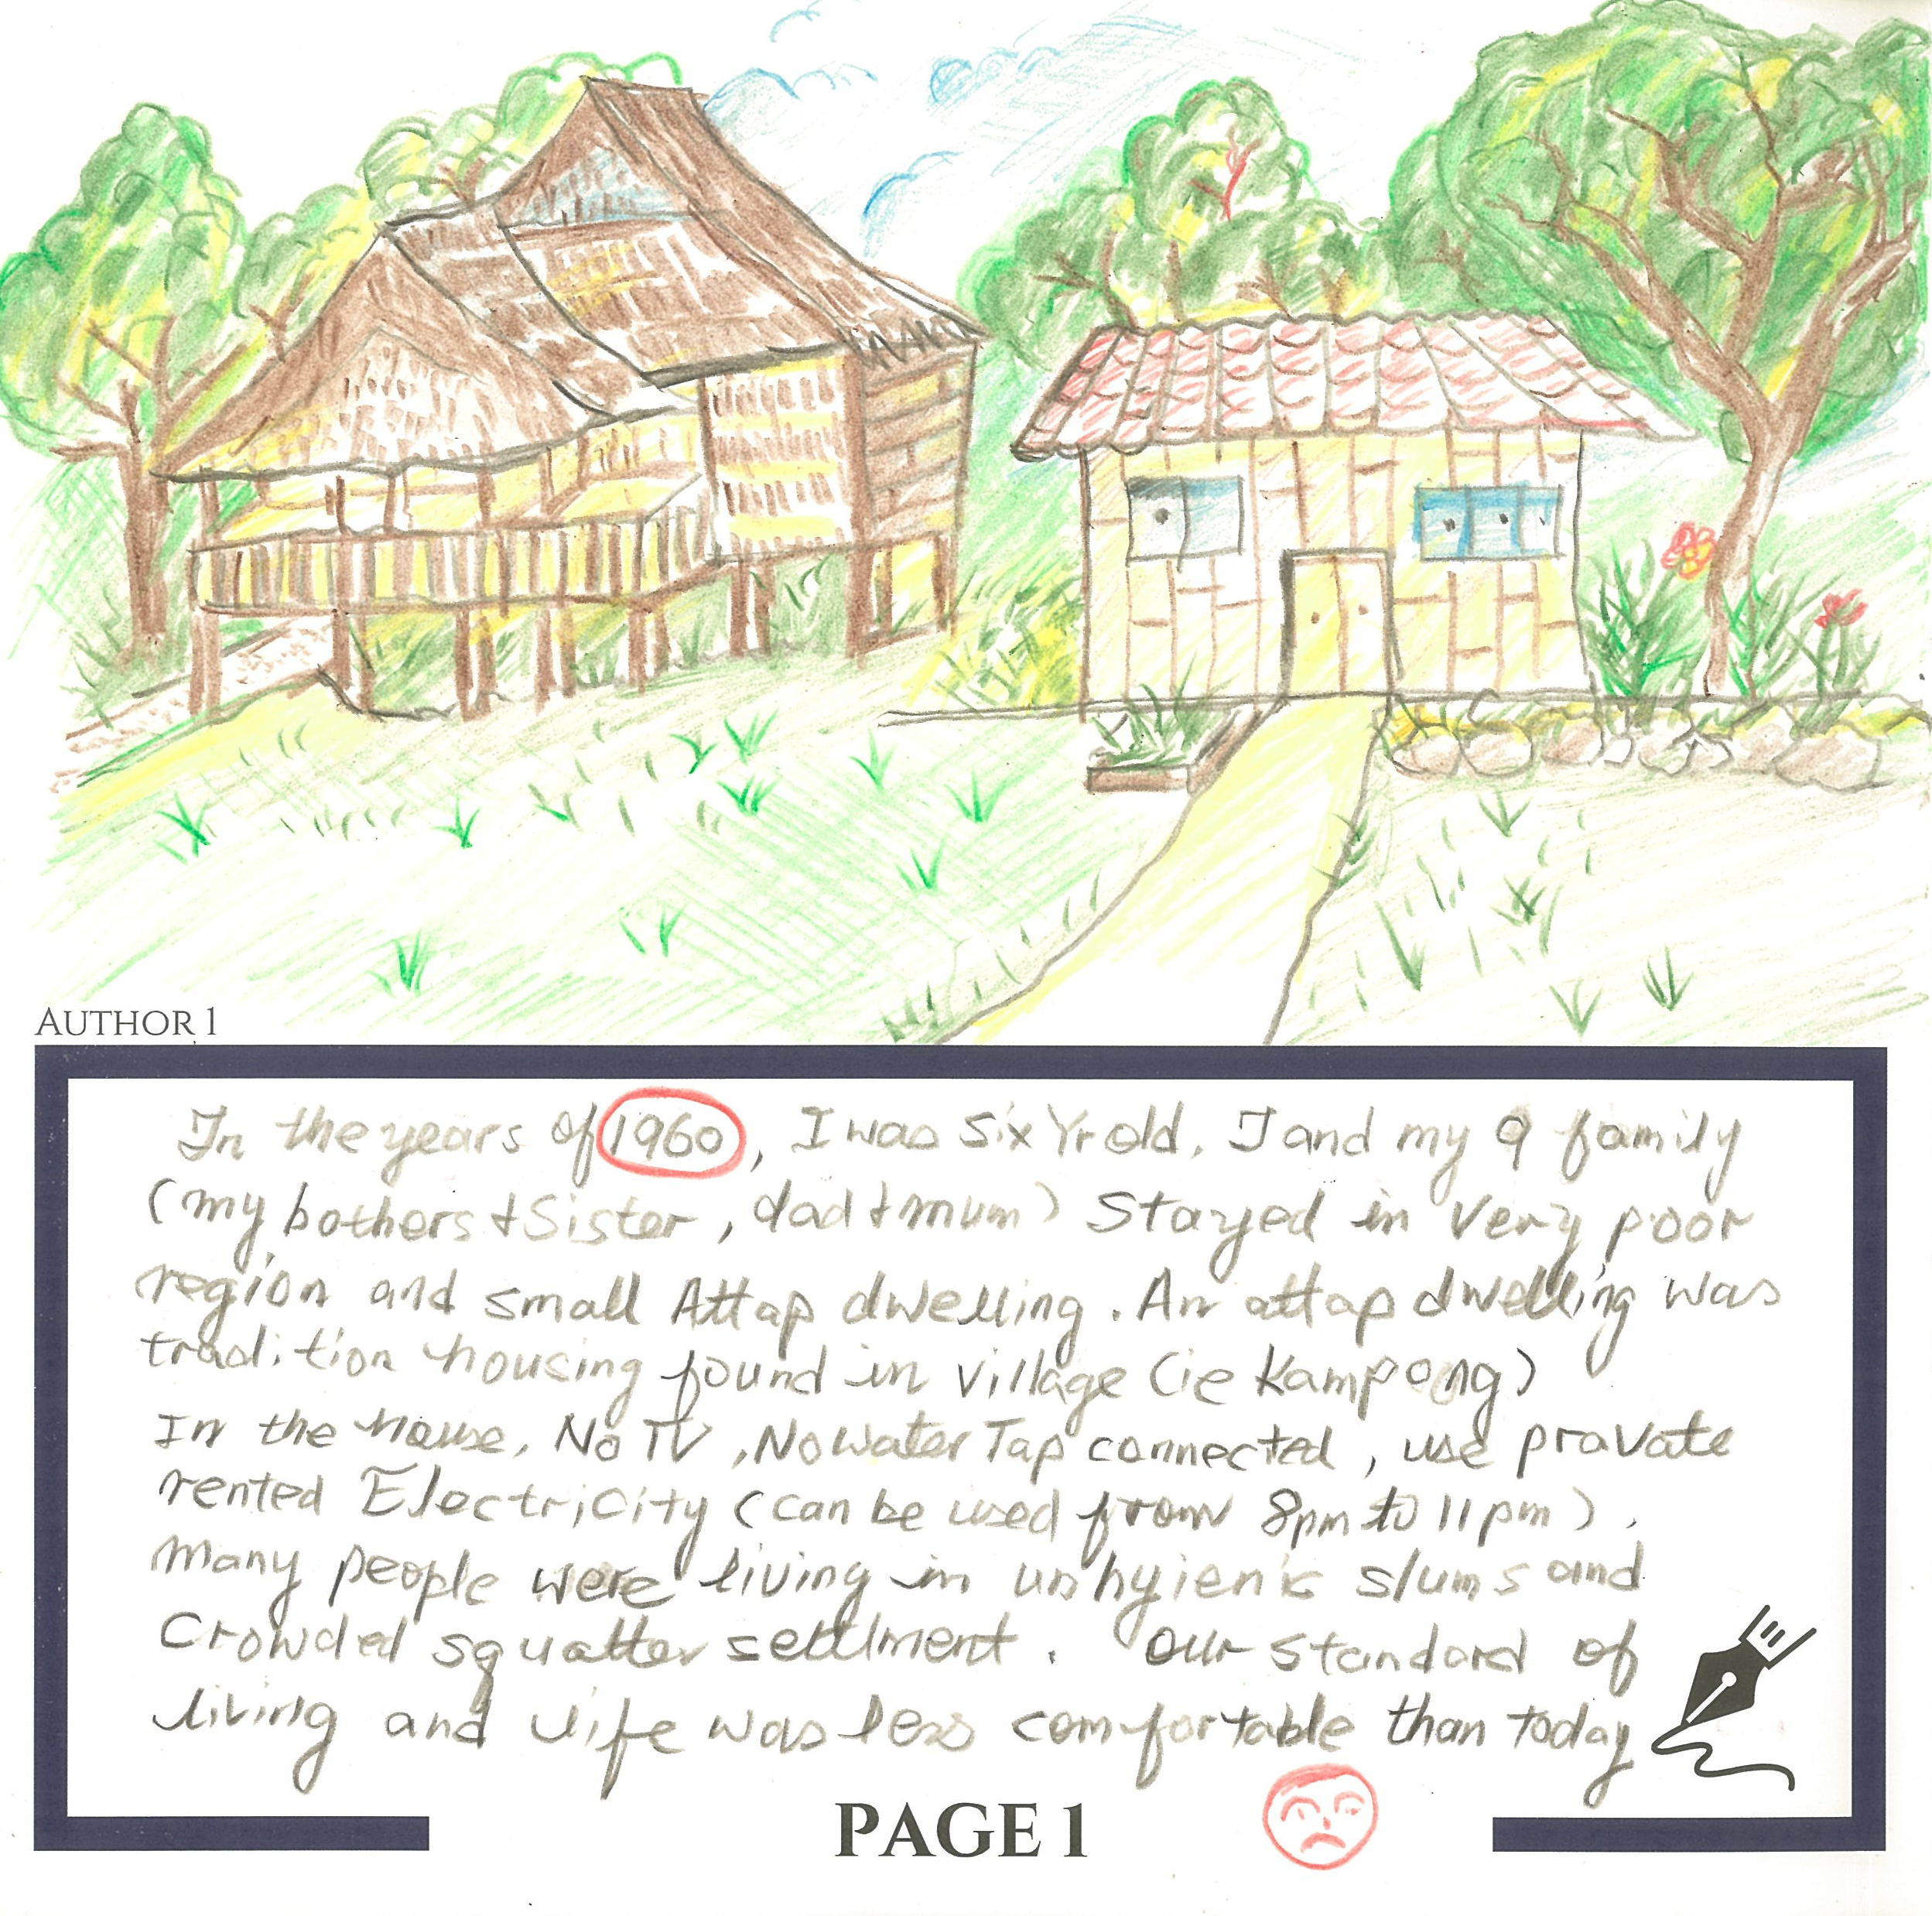 AUTHOR 1
In the years of 1960, I was six Yr old, I and my 9 family
(my bothers + Sister, dad + mum) Stayed in very poor
region and small Attap dwelling. An attap dwelling was
tradition housing found in village (ie Kampong)
In the house, No TV, No water Tap connected, use pravate
rented Electricity (can be used from 8pm to 11pm).
Many people were living in unhyienic slums and
Crowded squatter settlment. Our standard of
living and life was less comfortable than today
PAGE 1